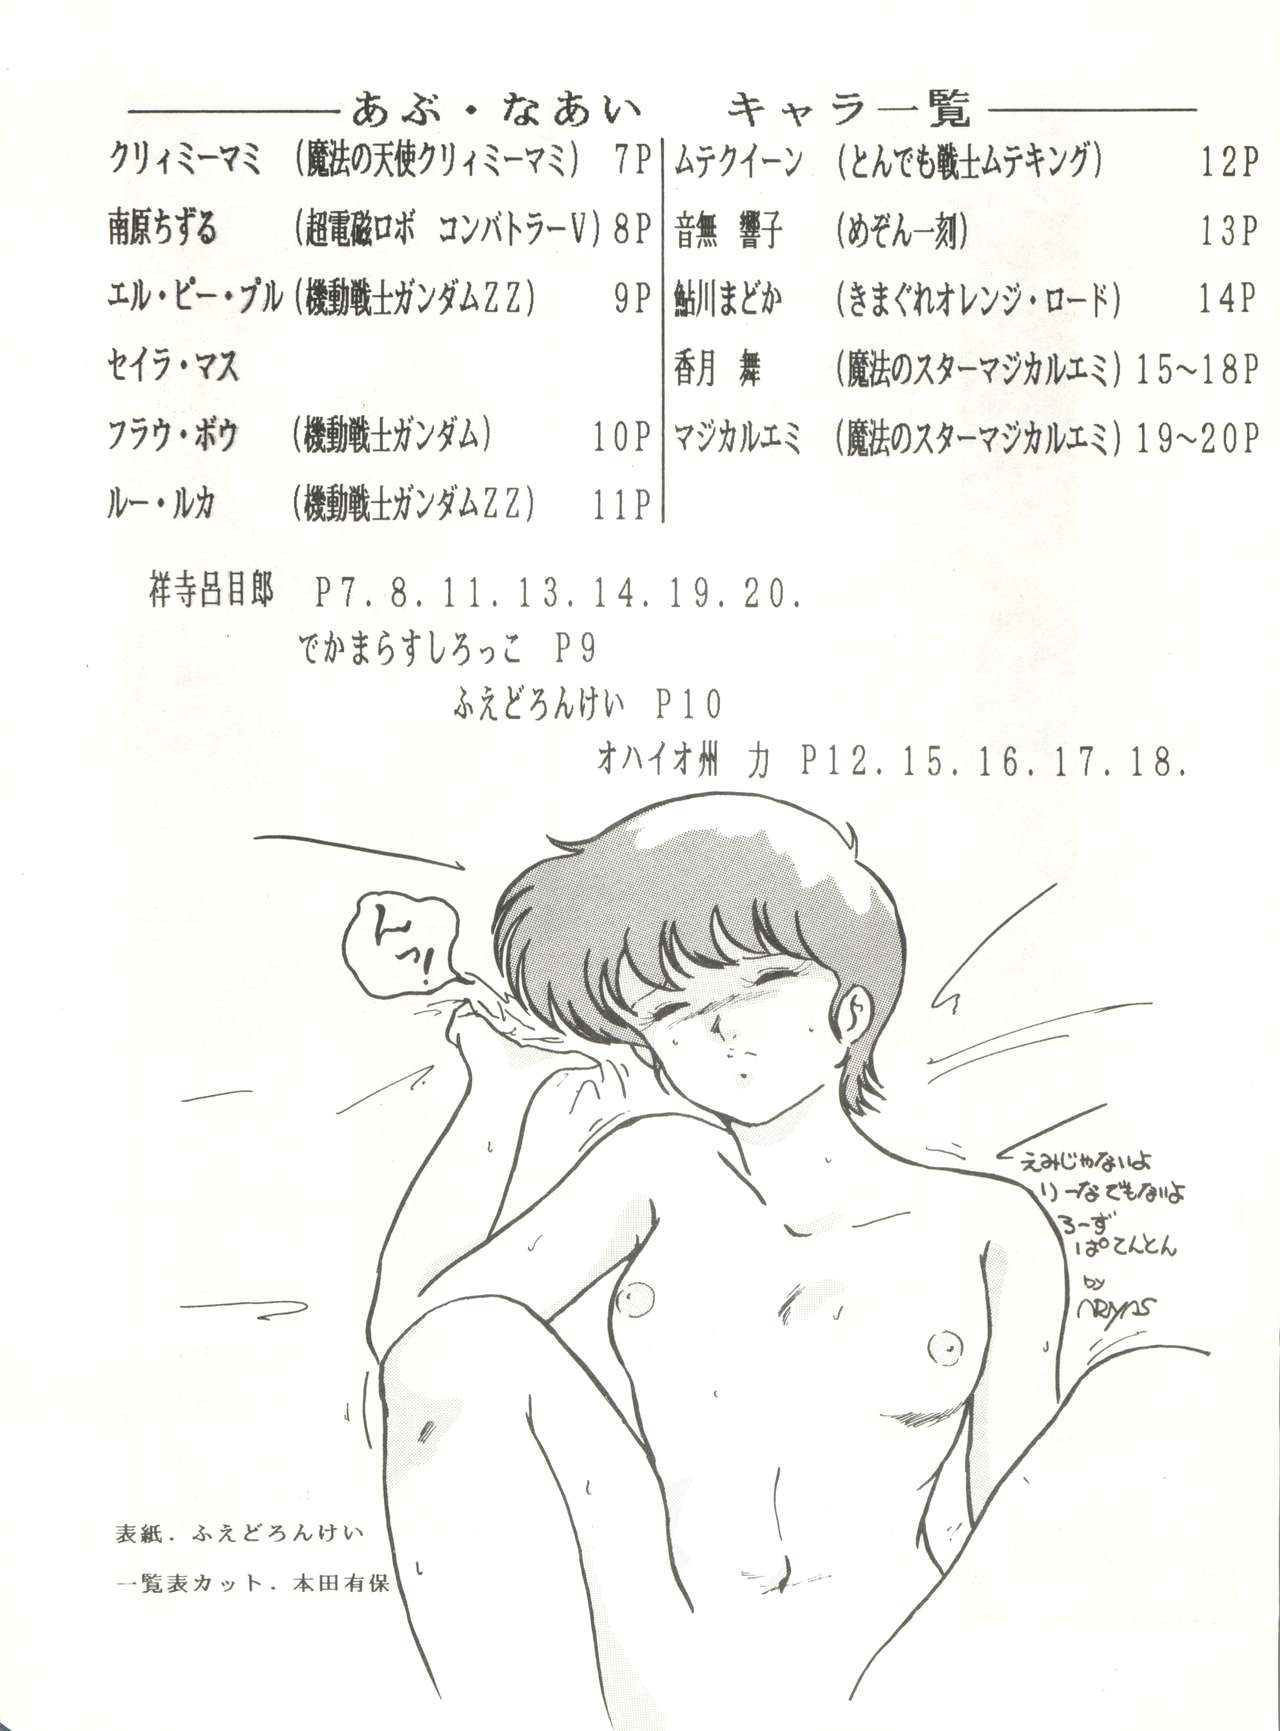 あぶ・なあい　キャラ一覧
クリィミーマミ (魔法の天使クリィミーマミ) 7P
南原ちずる (超電磁ロボ コンバトラーV) 8P
エル・ピー・プル (機動戦士ガンダムZZ) 9P
セイラ・マス
フラウ・ボウ (機動戦士ガンダム) 10P
ルー・ルカ (機動戦士ガンダムZZ) 11P
ムテクイーン (とんでも戦士ムテキング) 12P
音無 響子 (めぞん一刻) 13P
鮎川まどか (きまぐれオレンジ・ロード) 14P
香月 舞 (魔法のスターマジカルエミ) 15〜18P
マジカルエミ (魔法のスターマジカルエミ) 19〜20P
祥寺呂目郎 P7.8.11.13.14.19.20.
でかまらすしろっこ P9
ふえどろんけい P10
オハイオ州 力 P12.15.16.17.18.
んっ!
えみじゃないよ
りーなでもないよ
ろーず
ぱてんとん
by
ARIYAS
表紙. ふえどろんけい
一覧表カット. 本田有保